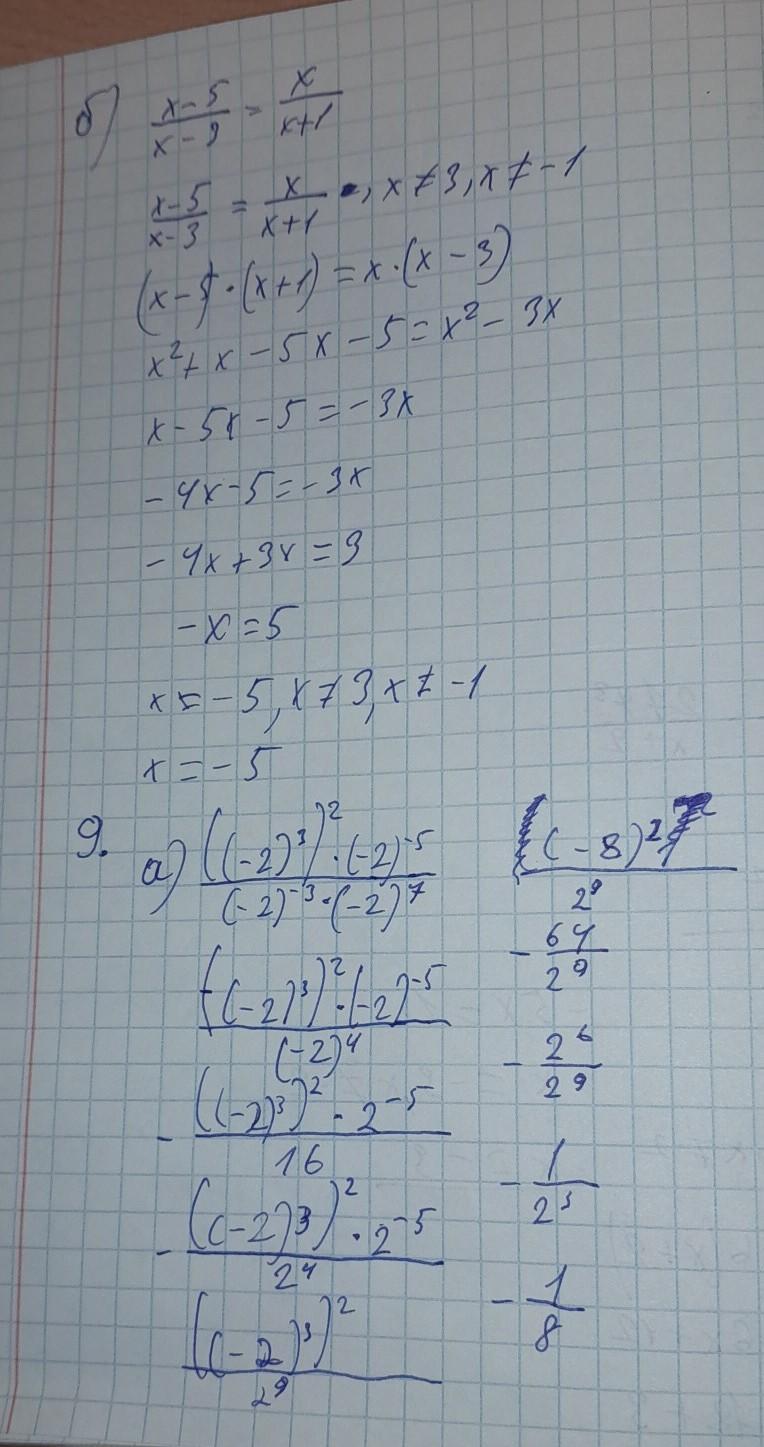 б) (x-5)/(x-9) = x/(x+1)
(x-5)/(x-3) = x/(x+1), x≠3, x≠-1
(x-5)·(x+1)=x·(x-3)
x²+x-5x-5=x²-3x
x-5x-5=-3x
-4x-5=-3x
-4x+3x=9
-x=5
x=-5, x≠3, x≠-1
x=-5
9. а) (((-2)³)²·(-2)⁻⁵)/((-2)⁻³·(-2)⁷)
(((-2)³)²·(-2)⁻⁵)/((-2)⁴)
-(((-2)³)²·2⁻⁵)/16
-(((-2)³)²·2⁻⁵)/2⁴
((-2)³)²/2⁹
(-8)²/2⁹
-64/2⁹
-2⁶/2⁹
-1/2³
-1/8